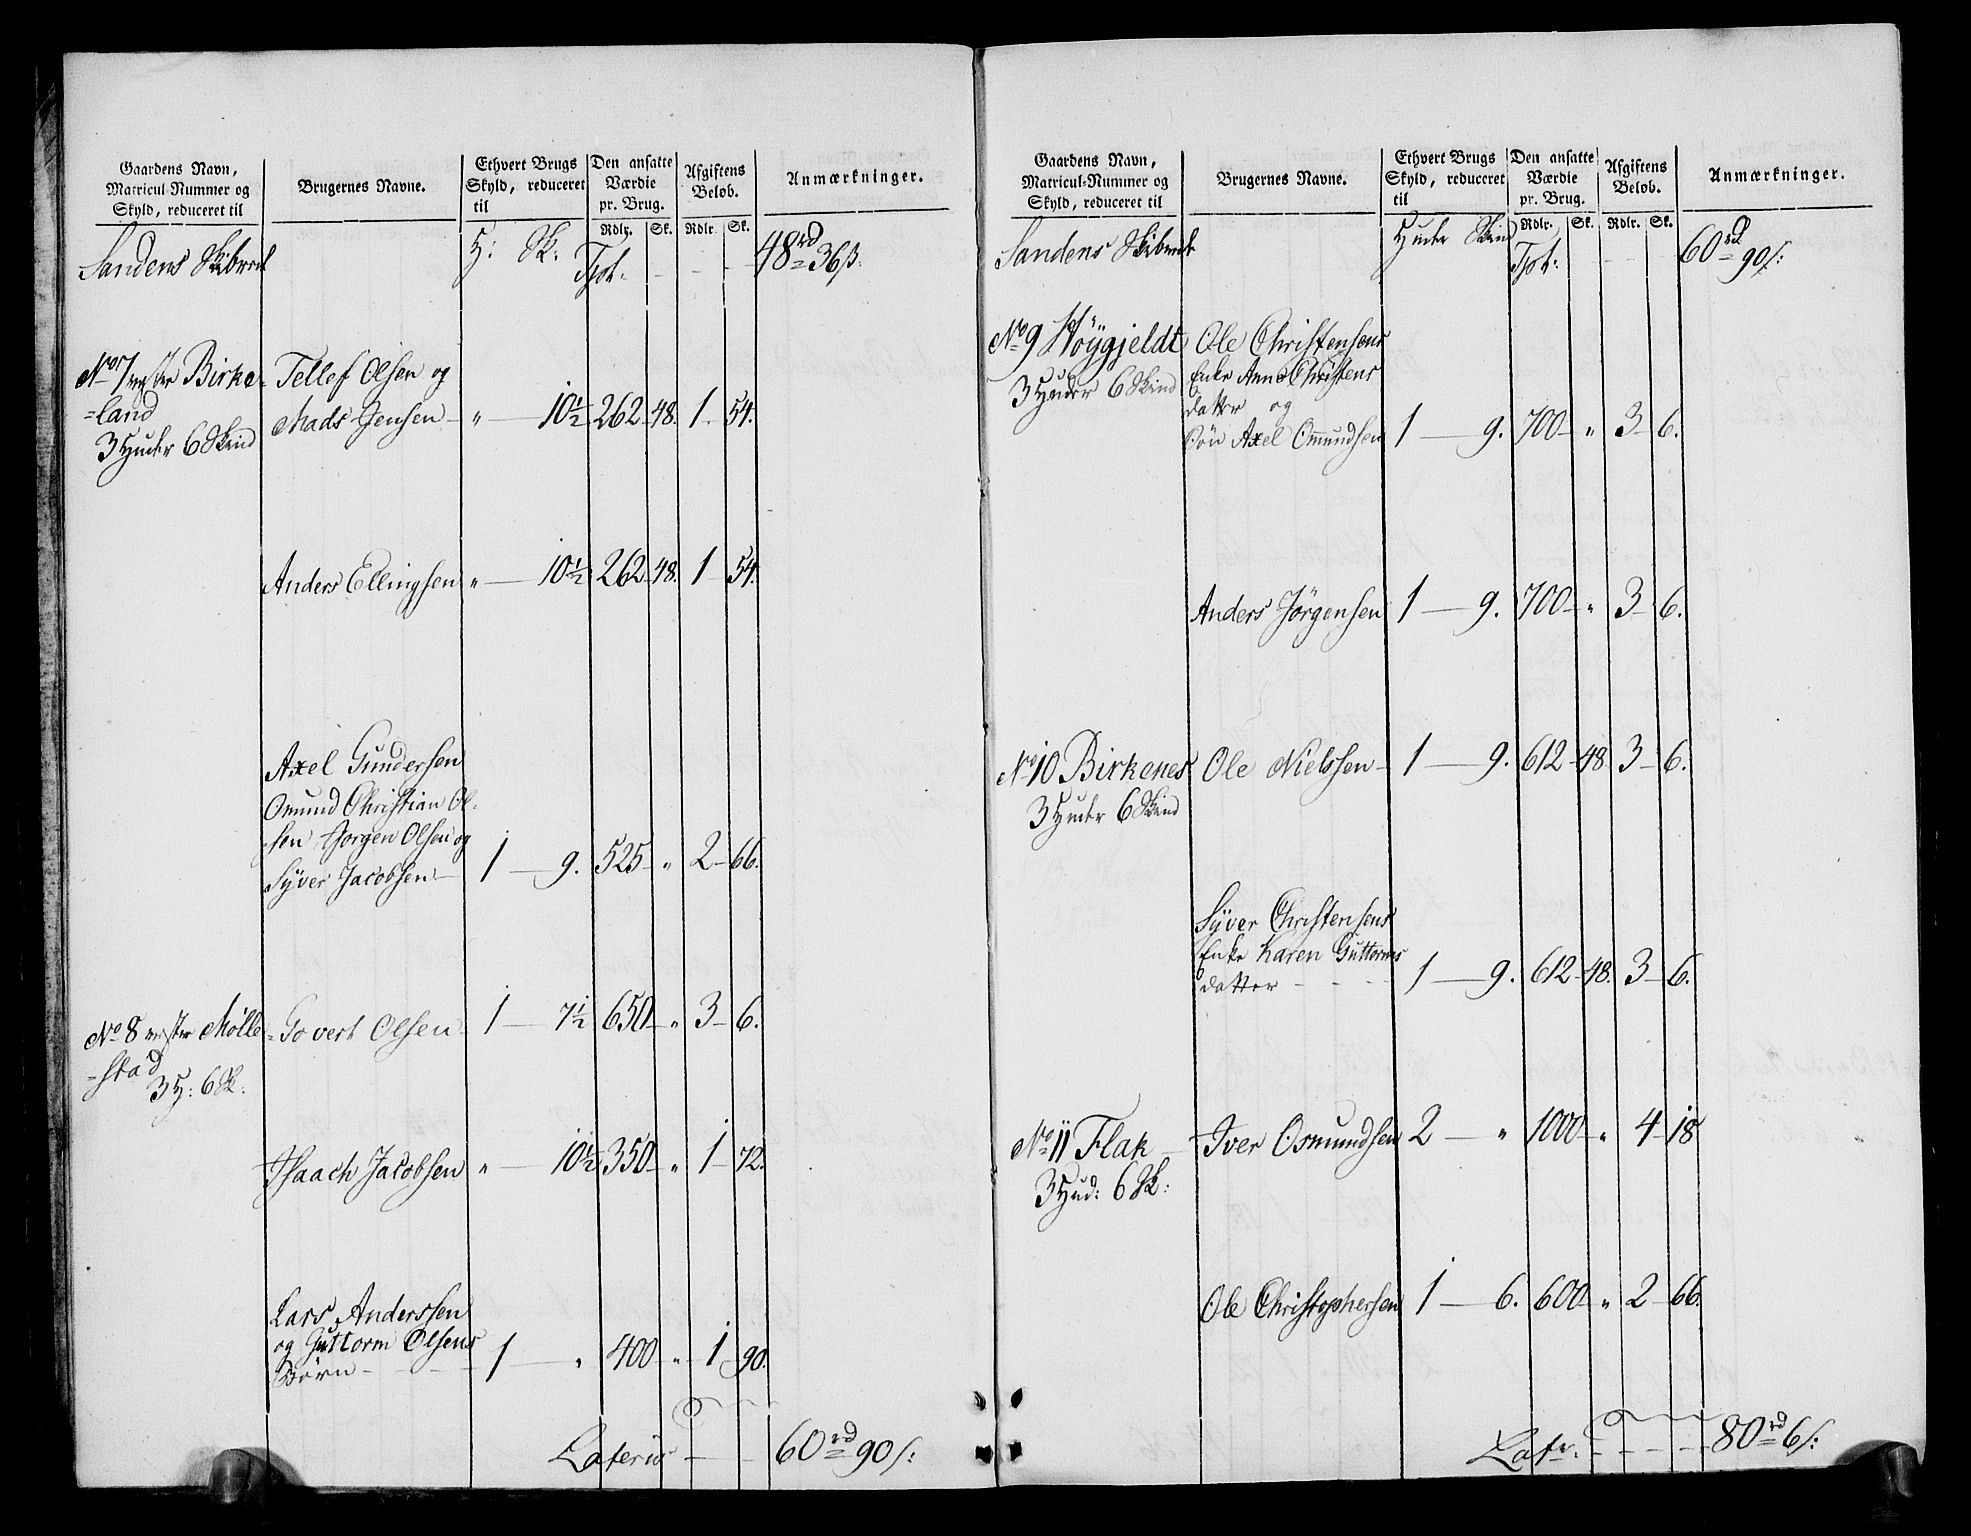 Gaardens Navn,
Matricul-Nummer og
Skyld, reduceret til
Brugernes Navne.
Ethvert Brugs
Skyld, reduceret
til
Den ansatte
Værdie
pr. Brug.
Rdlr. Sk.
Afgiftens
Beløb.
Rdlr. Sk.
Anmærkninger.
Sandens Skibrede H: Sk: Tpt. - - - 48rd 36ß:
No 7 vester Birke- Tellef Olsen og
=land Mads Jensen - " - 10½ 262 48. 1 - 54.
3 Huder 6 Skind
Anders Ellingsen " - 10½ 262 48. 1 - 54.
Axel Gundersen
Omund Christian Ol-
sen Jørgen Olsen og
Syver Jacobsen - 1 - 9. 525 " 2 - 66.
No 8 vester Mølle- Govert Olsen - 1 - 7½ 650 " 3 - 6.
=stad
3 H: 6 Sk:
Isaach Jacobsen " - 10½ 350 " 1 - 72.
Lars Anderssen
og Guttorm Olsens
Børn - - - 1 - " 400 " 1 - 90.
Lateris - - 60rd 90ß:
Gaardens Navn,
Matricul-Nummer og
Skyld, reduceret til
Brugernes Navne.
Ethvert Brugs
Skyld, reduceret
til
Den ansatte
Værdie
pr. Brug.
Rdlr. Sk.
Afgiftens
Beløb.
Rdlr. Sk.
Anmærkninger.
Sandens Skibrede Huder Skind Tpt: - - - 60rd 90ß:
No 9 Höygjeldt Ole Christensens
3 Huder 6 Skind Enke Anne Christens
datter og
Søn Axel Omundsen 1 - 9. 700 - " 3 - 6.
Anders Jörgensen 1 - 9. 700 - " 3 - 6.
No 10 Birkenes Ole Nielssen - 1 - 9. 612 - 48. 3 - 6.
3 Huder 6 Skind
Syver Christensens
Enke Karen Guttorms
datter - - - 1 - 9. 612 - 48. 3 - 6.
No 11 Flak - Iver Osmundsen 2 - " 1000 - " 4 - 18
3 Hud: 6 Sk:
Ole Christophersen 1 - 6. 600 - " 2 - 66.
Latr. - - - 80rd 6ß: